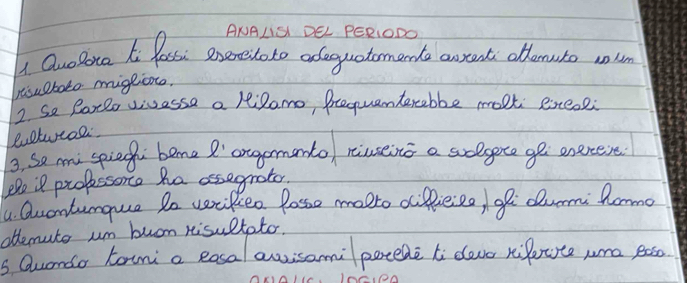 ANALISI DEL PERIODO
1. Qualora ti fossi esercitato adeguatamente avresti ottenuto un
risultato migliore.
2. Se Carlo vivesse a Milano, frequenterebbe molti circoli
culturali.
3. Se mi spieghi bene l'argomento, riuscirò a svolgere gli esercizi
che il professore ha assegnato.
4. Quantunque la verifica fosse molto difficile, gli alunni hanno
ottenuto un buon risultato.
5. Quando torni a casa avvisami perché ti devo riferire una cosa.
ANALISI LOGICA